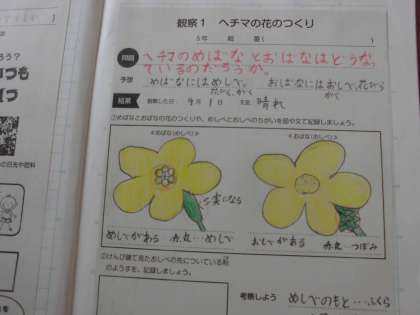 観察1 ヘチマの花のつくり
5年 組 番( )
問題 ヘチマのめばなとおばなはどうなっ
ているのだろうか。
予想 めばなにはめしべ、おばなにはおしべ、花びら
花びら、がく がく
結果 観察した日: 9月1日 天気 晴れ
①めばなとおばなの花のつくりや、めしべとおしべのちがいを図や文で記録しましょう。
≪めばな(めしべ)≫ ≪おばな(おしべ)≫
実になる
めしべがある 赤丸…めしべ
おしべがある 赤丸…つぼみ
②けんび鏡で見たおしべの先についている粉
のようすを、記録しましょう。
考察しよう めしべのもと…ふくら
ろう?
つも
ぱつ
の日光や肥料